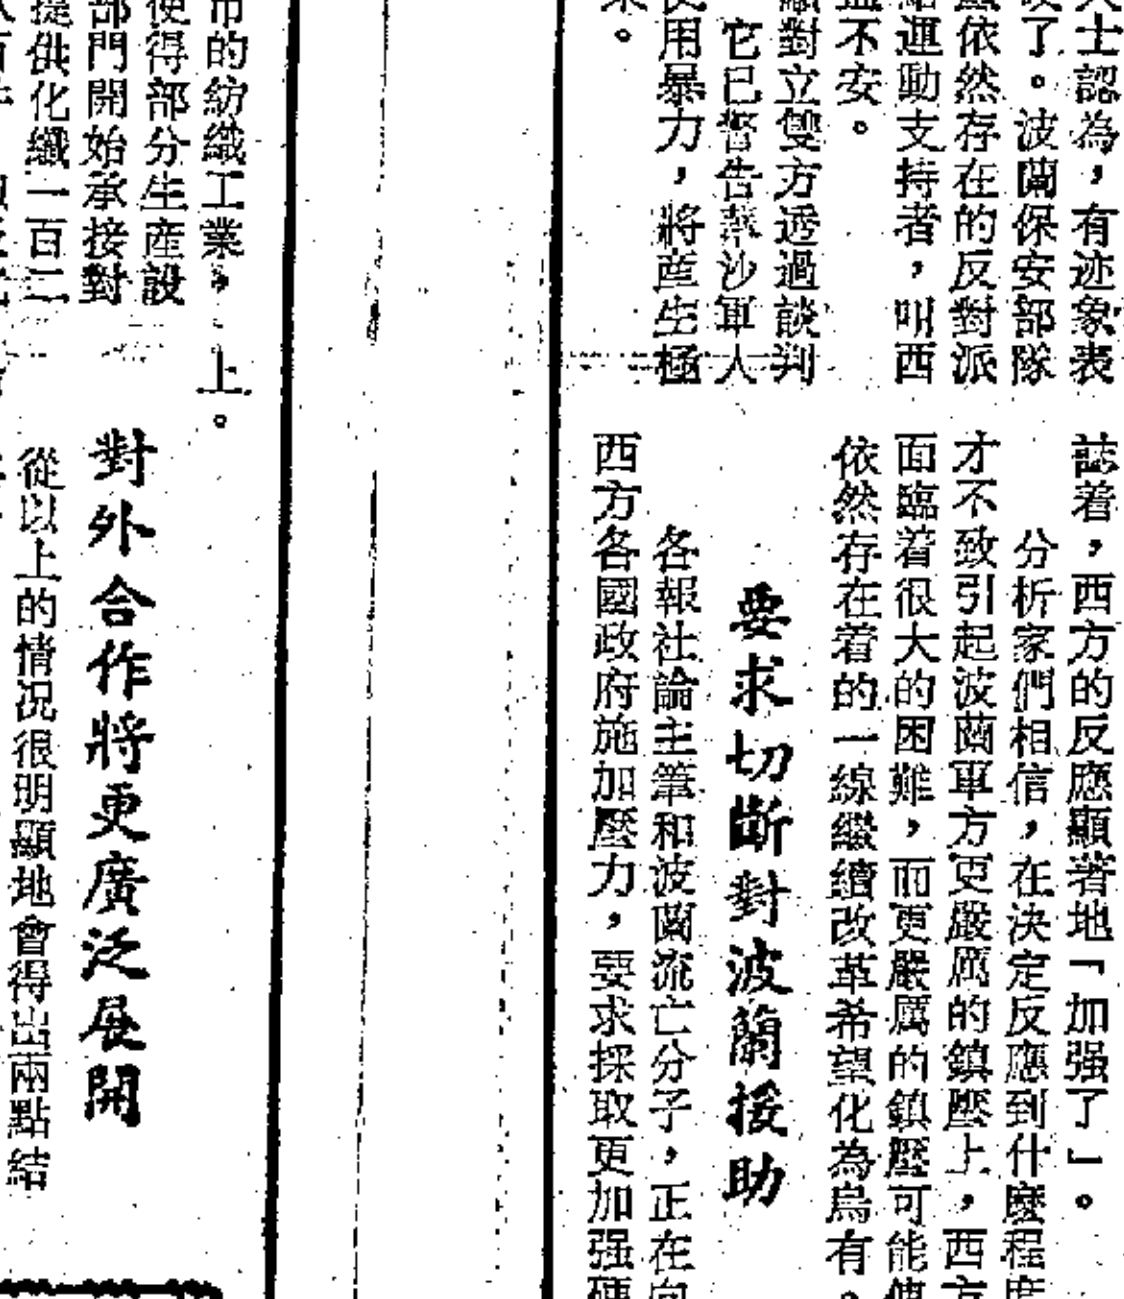 士認為，有迹象表
了。波蘭保安部隊
依然存在的反對派
運動支持者，叫西
不安。
對立雙方透過談判
它已警告華沙軍人
用暴力，將産生極
誌着，西方的反應顯著地「加强了」。
分析家們相信，在决定反應到什麽程度
才不致引起波蘭軍方更嚴厲的鎮壓上，西方
面臨着很大的困難，而更嚴厲的鎮壓可能使
依然存在着的一線繼續改革希望化為烏有。
要求切斷對波蘭援助
各報社論主筆和波蘭流亡分子，正在向
西方各國政府施加壓力，要求採取更加强硬
市的紡織工業，上。
使得部分生産設
部門開始承接對
提供化纖一百二
對外合作將更廣泛展開
從以上的情况很明顯地會得出兩點結